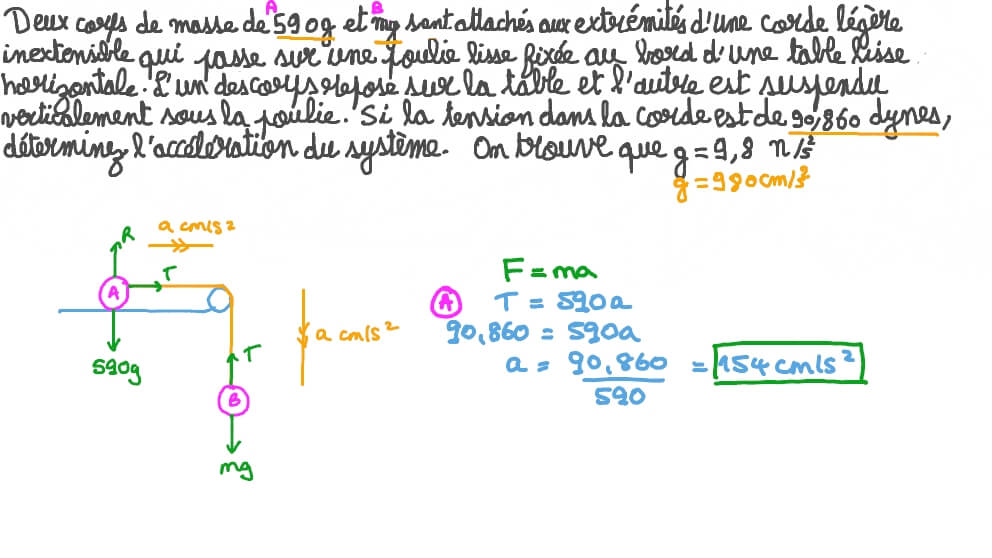 A B
Deux corps de masse de 590g et mg sont attachés aux extrémités d'une corde légère
inextensible qui passe sur une poulie lisse fixée au bord d'une table lisse
horizontale. L'un des corps repose sur la table et l'autre est suspendu
verticalement sous la poulie. Si la tension dans la corde est de 90,860 dynes,
déterminez l'accélération du système. On trouve que g = 9,8 m/s²
g = 980cm/s²
a cm/s²
R
T
A
590g
a cm/s²
T
B
mg
F = ma
A T = 590a
90,860 = 590a
a = 90,860 = 154 cm/s²
590